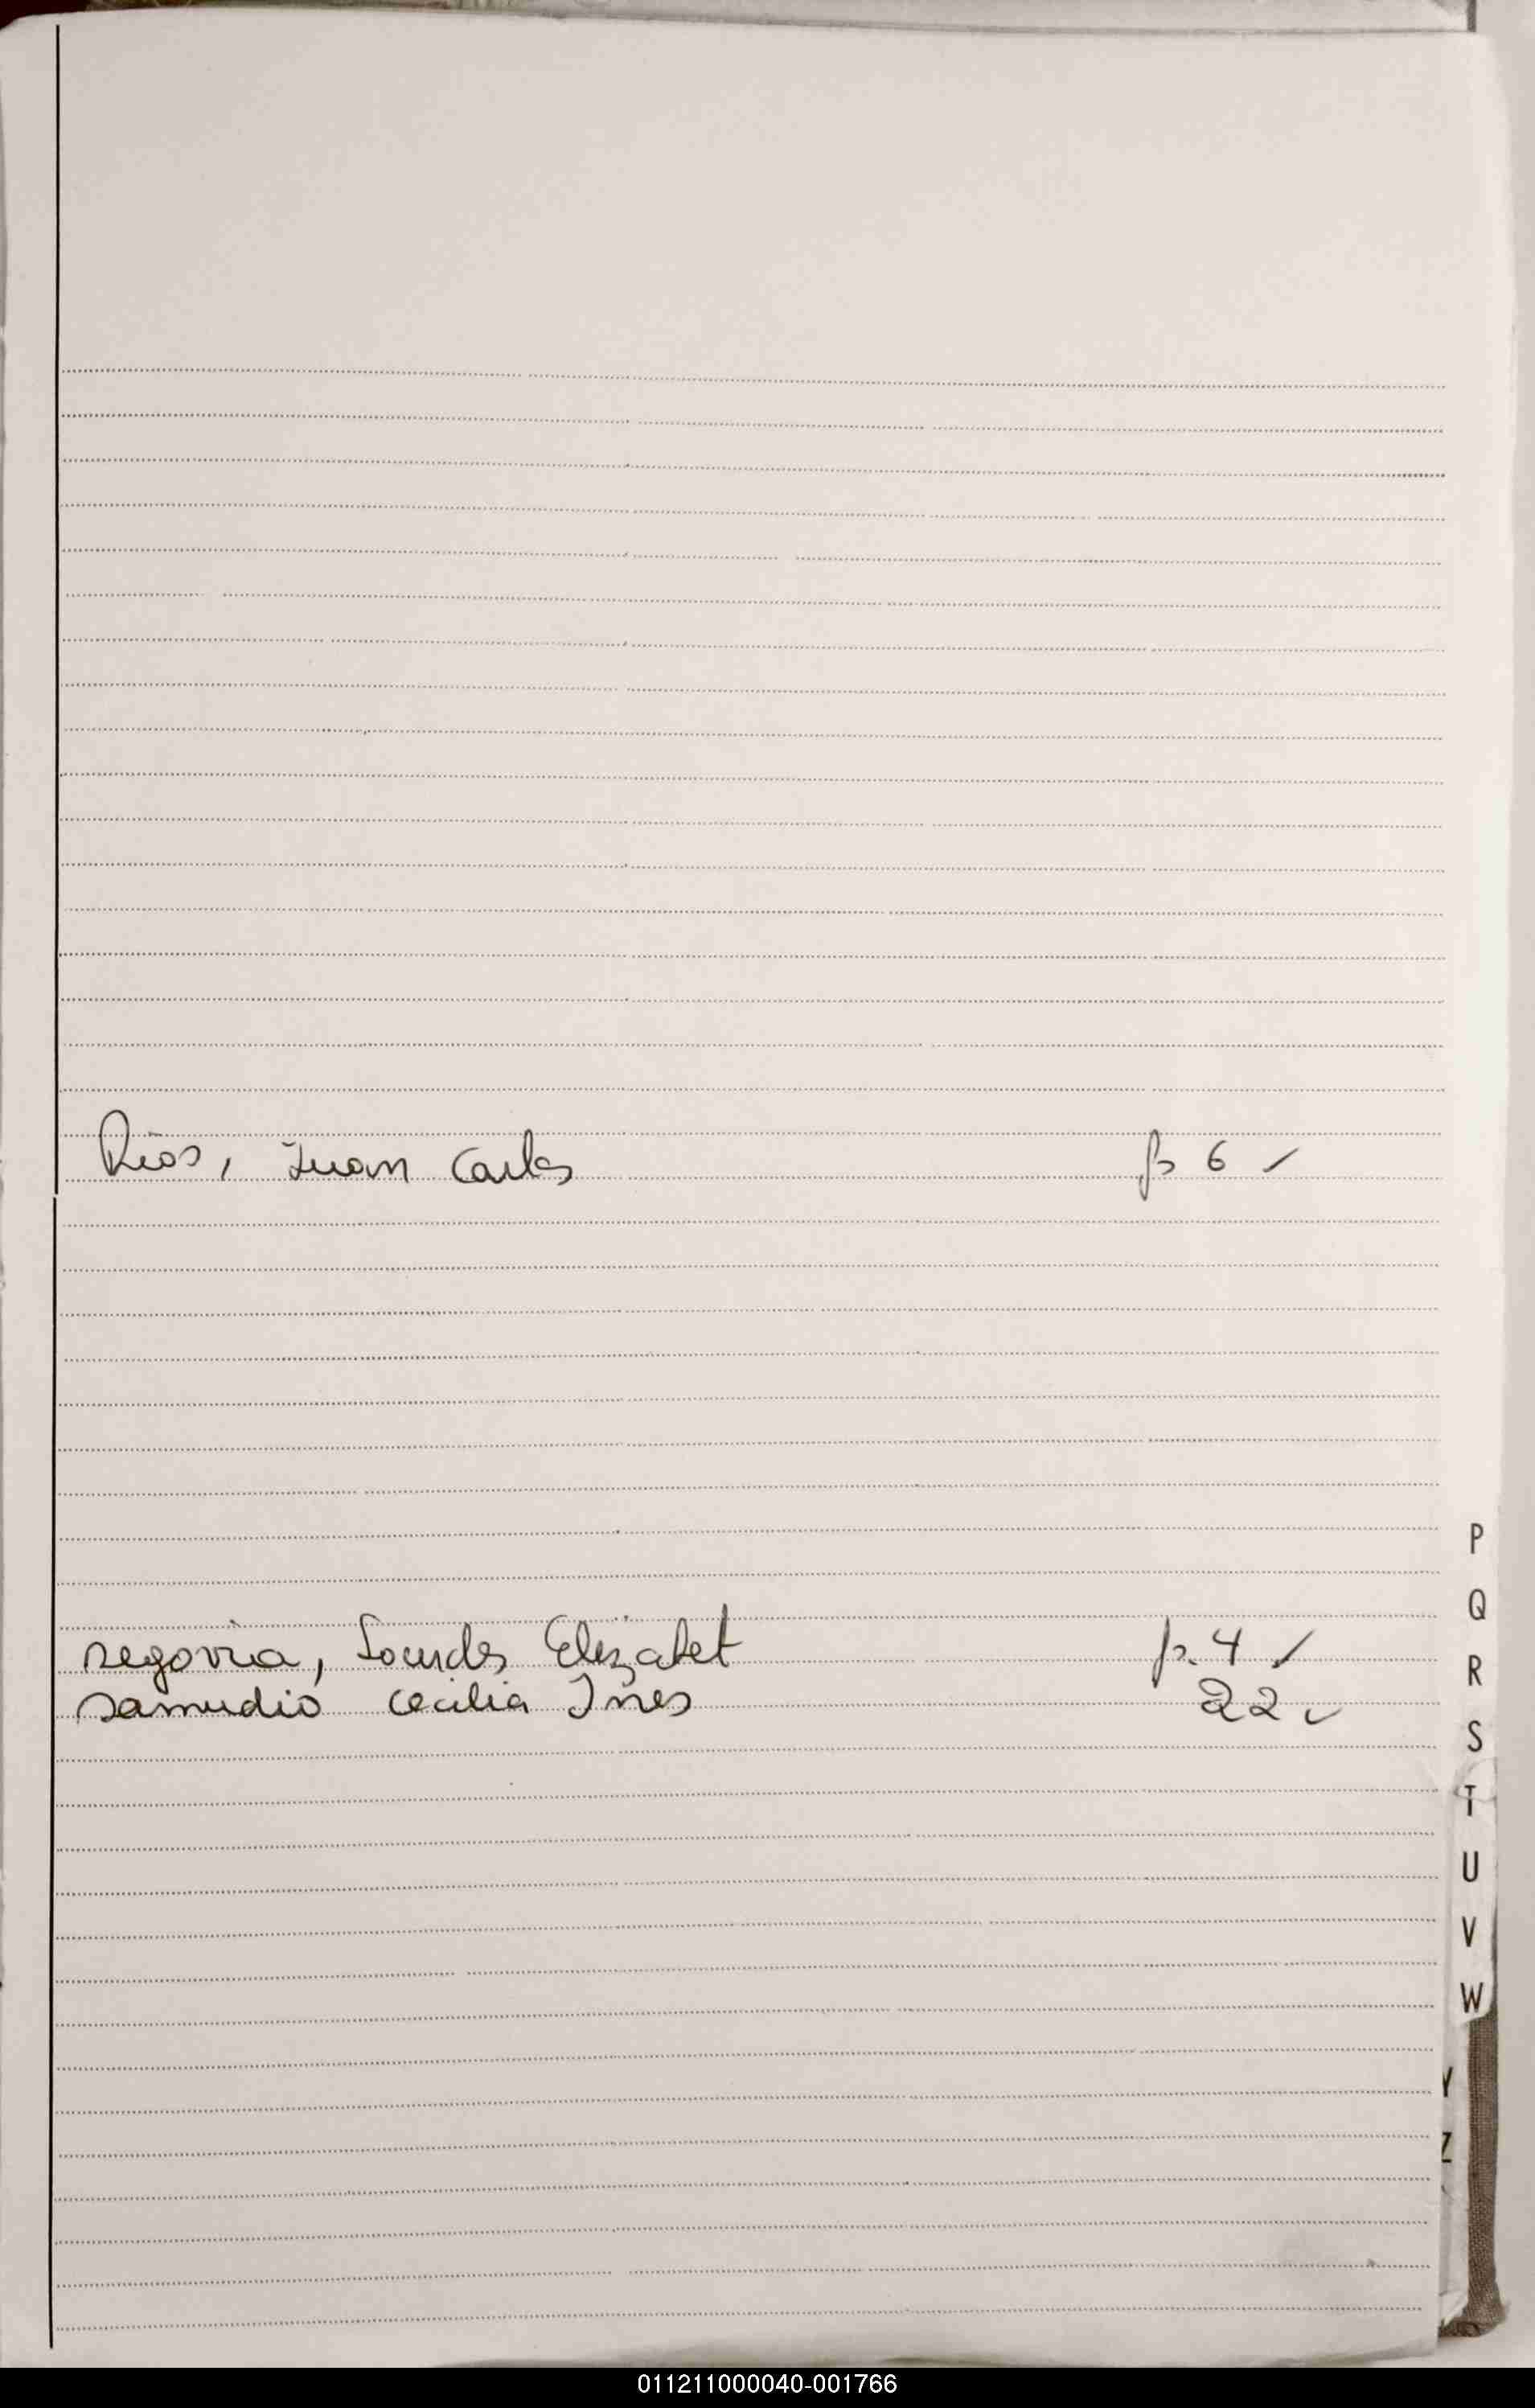 Rios, Juan Carlos p 6 ✓
segovia, Lourdes Elizabet p. 4 ✓
samudio cecilia Ines 22 ✓
P
Q
R
S
T
U
V
W
Y
Z
011211000040-001766